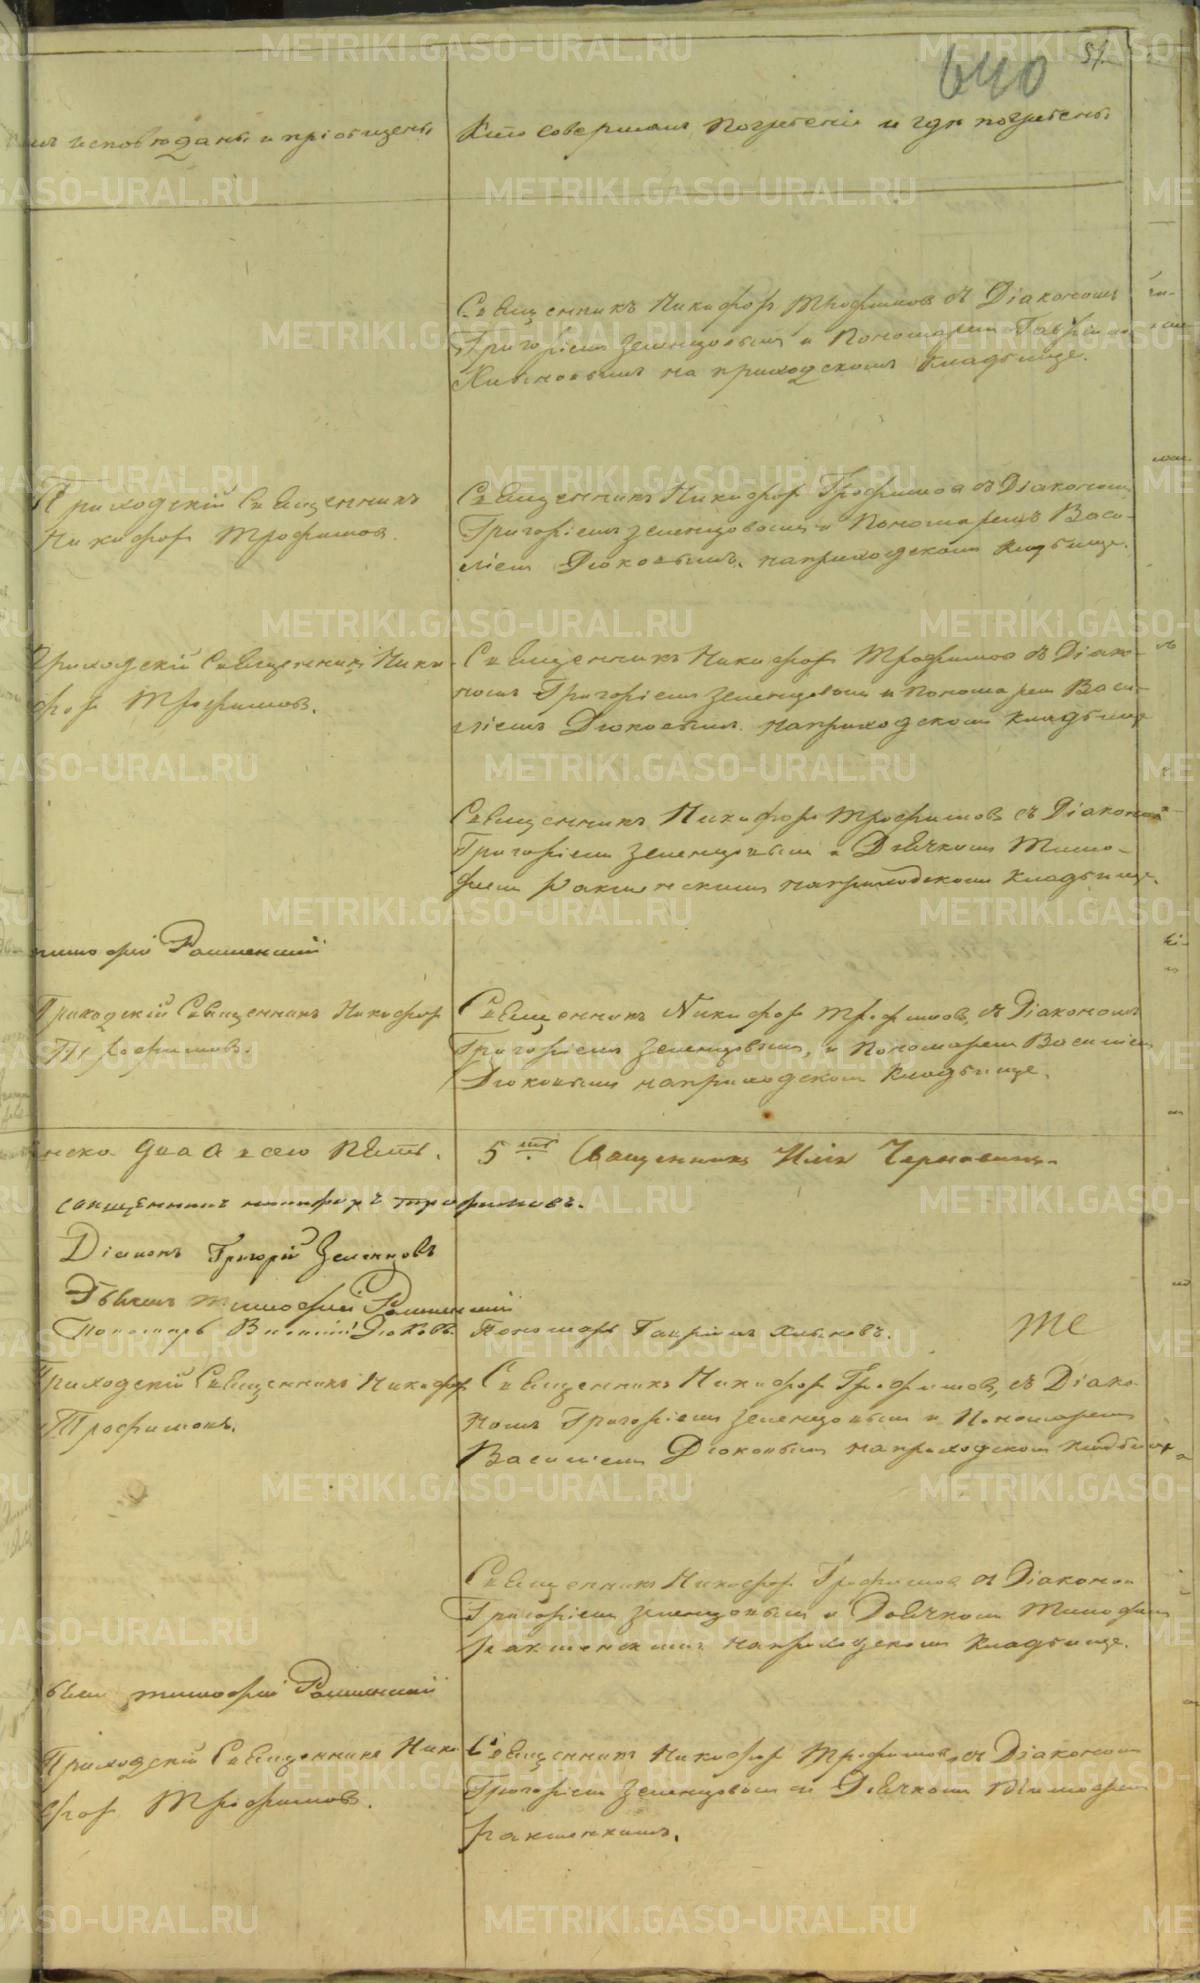 640 51.
исповѣданы и пріобщены
Кто совершалъ погребеніе и гдѣ погребены
Священникъ Никифоръ Трофимовъ съ Діакономъ
Григоріемъ Зеленцовымъ и Пономаремъ
на приходскомъ кладбище.
Приходскій Священникъ
Никифоръ Трофимовъ.
Священникъ Никифор Трофимовъ съ Діакономъ
Григоріемъ Зеленцовымъ и Пономаремъ Васи-
ліемъ Дюковымъ. на приходскомъ кладбище.
Приходскій Священникъ Ники-
форъ Трофимовъ.
Священникъ Никифоръ Трофимовъ съ Діако-
номъ Григоріемъ Зеленцовымъ и Пономаремъ Васи-
ліемъ Дюковымъ. на приходскомъ кладбище
Священникъ Никифоръ Трофимовъ съ Діакономъ
Григоріемъ Зеленцовымъ и Дьячкомъ Тимо-
феем на приходскомъ кладбище.
тимофей
Приходскій Священникъ Никифор
Трофимовъ.
Священникъ Никифор Трофимовъ, съ Діакономъ
Григоріемъ Зеленцовымъ, и Пономаремъ Василіемъ
Дюковымъ на приходскомъ кладбище.
два а всего пять.
5ть Священникъ Илія
священникъ никифоръ трофимовъ.
Діаконъ Григорій Зеленцовъ
Дьячекъ тимофей
Пономарь Василій Дюковъ.
Пономарь Гавріилъ
Приходскій Священникъ Никифор
Трофимовъ.
Священникъ Никифор Трофимовъ, съ Діако-
номъ Григоріемъ Зеленцовымъ и Пономаремъ
Василіемъ Дюковымъ на приходскомъ кладбище
Священникъ Никифор Трофимовъ съ Діакономъ
Григоріемъ Зеленцовымъ и Дьячкомъ Тимофеем
на приходскомъ кладбище.
тимофей
Приходскій Священникъ Ники
фор Трофимовъ.
Священникъ Никифоръ Трофимовъ съ Діакономъ
Григоріемъ Зеленцовымъ и Дьячкомъ Тимофеем
METRIKI.GASO-URAL.RU